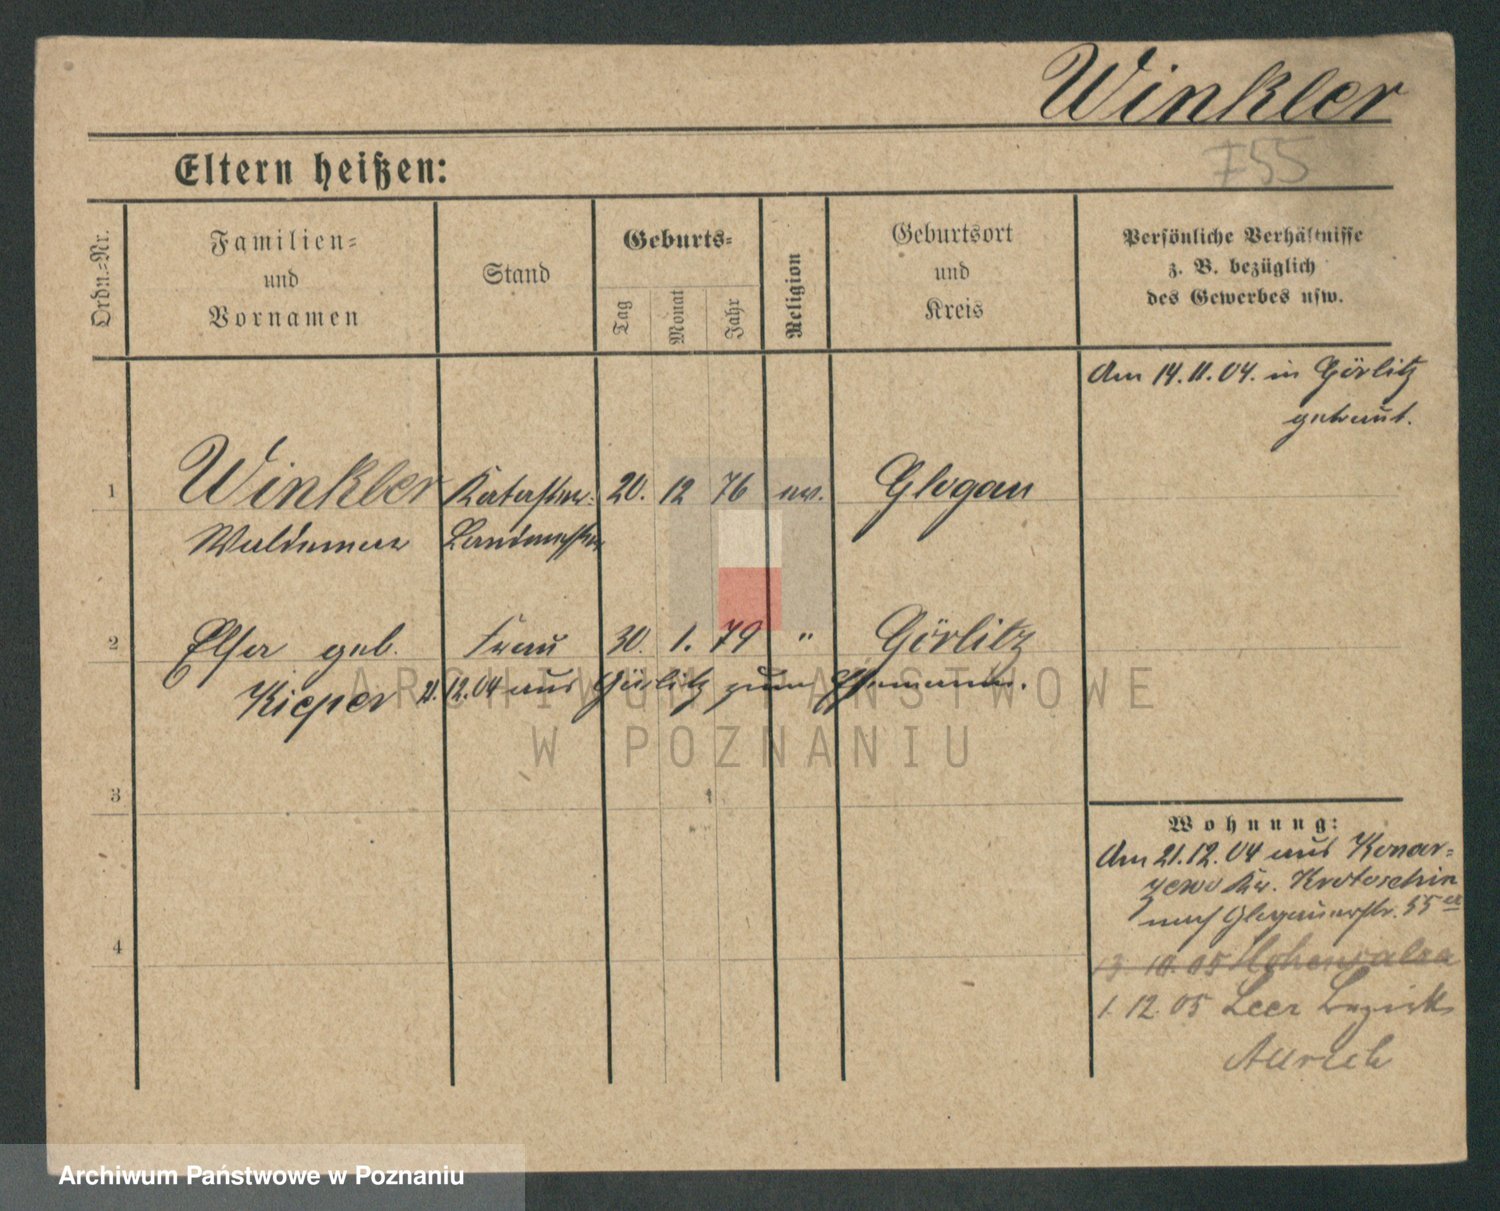 Winkler
755
Eltern heißen:
Ordn.-Nr.
Familien-
und
Vornamen
Stand
Geburts-
Tag
Monat
Jahr
Religion
Geburtsort
und
Kreis
Persönliche Verhältnisse
z. B. bezüglich
des Gewerbes usw.
Am 14.11.04. in Görlitz
getraut.
1 Winkler Kataster- 20. 12 76 ev. Glogau
Waldemar Landmesser
2 Elsa geb. Frau 30. 1. 79 " Görlitz
Kieper 21.12.04 aus Görlitz zum Ehemann.
3
Wohnung:
Am 21.12.04 aus Konar-
zewo Kr. Krotoschin
nach Glogauerstr. 55
4
13 10.05 Hohensalza
1.12.05 Leer Bezirk
Aurich
ARCHIWUM PAŃSTWOWE
W POZNANIU
Archiwum Państwowe w Poznaniu